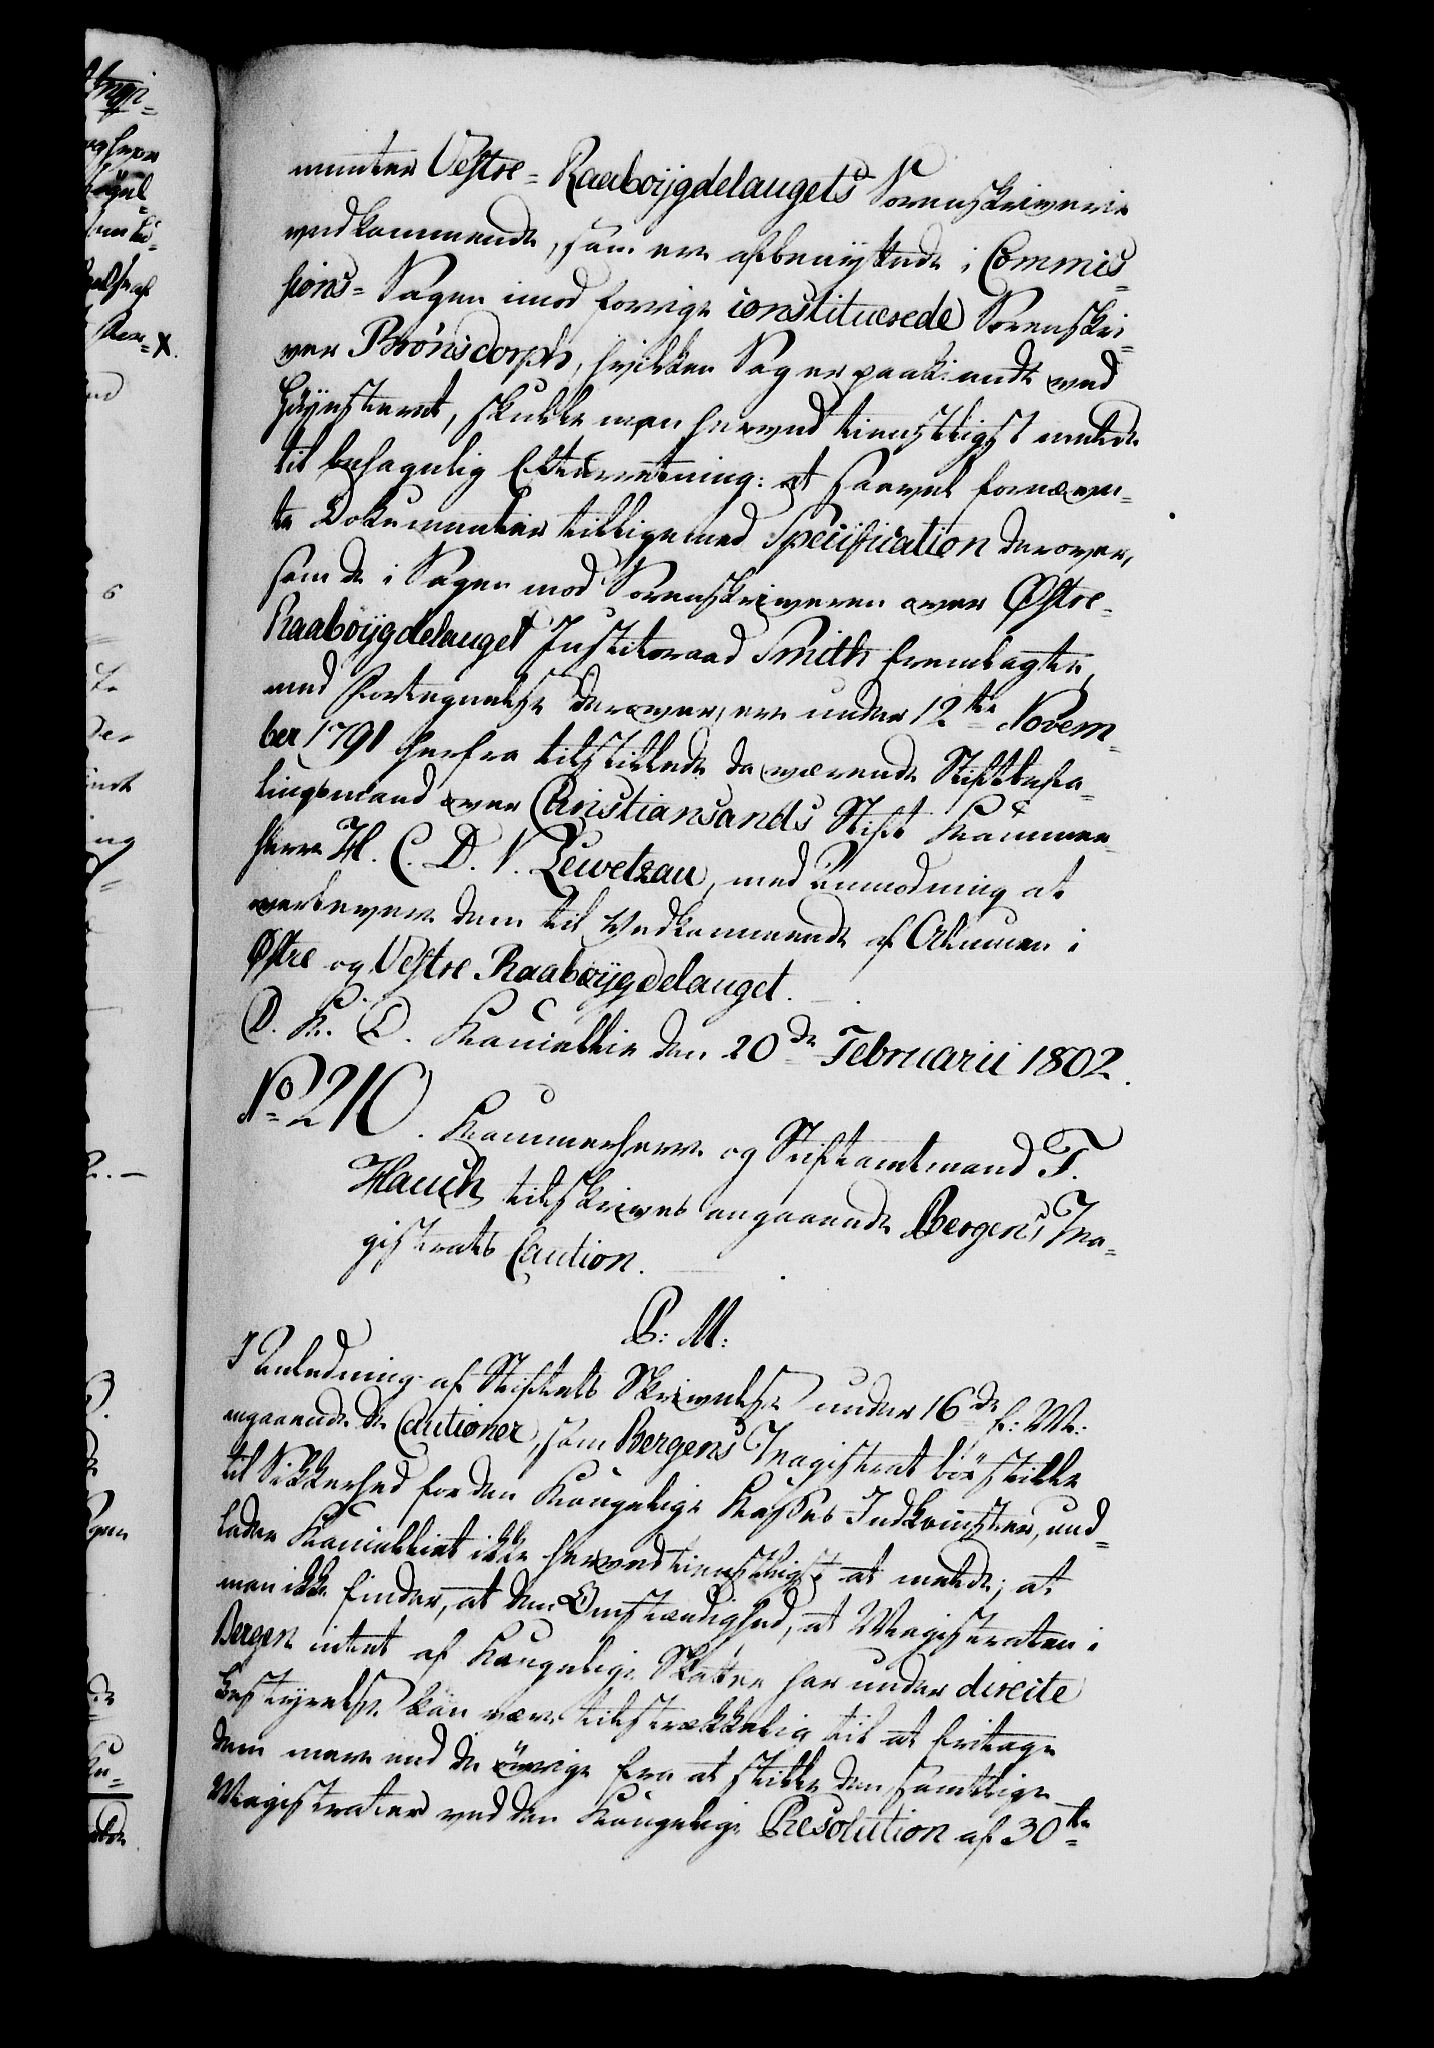 menter Vestre-Raaböijgdelaugets Sorenskriverie
vedkommende, som ere afbenÿttede i Commis-
sions-Sagen imod forrige constituerede Sorenskri-
ver Brönsdorph, hvilken Sag er paakiendt ved
Höÿesteret, skulle man herved tienstligst melde
til behagelig Efterretning: at saavel fornævn-
te Dokumenter tilligemed Specification derover,
som de i Sagen mod Sorenskriveren over Østre-
Raaböijgdelauget Justitsraad Smith fremlagte,
med Fortegnelse derover, ere under 12te Novem-
ber 1791 herfra tilstillede da værende Stiftbefa-
lingsmand over Christiansands Stift Kammer-
herre H. C. D. V. Lewetzau, med Anmodning at
overlevere dem til Vedkommende af Almuen i
Østre og Vestre Raaböijgdelauget.
D. K. D. Kancellie den 20de Februarii 1802.
No 210. Kammerherre og Stiftamtmand F.
Hauch tilskrives angaaende Bergens Ma-
gistrats Caution.
P: M:
I Anledning af Stiftets Skrivelse under 16de f: M:
angaaende de Cautioner, som Bergens Magistrat bör stille
til Sikkerhed for den Kongelige Kasses Indkomster, und-
lader Kancelliet ikke herved tienstligst at melde; at
man ikke finder, at den Omstændighed, at Magistraten i
Bergen intet af Kongelige Skatter har under directe
Bestÿrelse kan være tilstrækkelig til at fritage
dem mere end de övrige fra at stille den samtlige
Magistrater ved den Kongelige Resolution af 30te